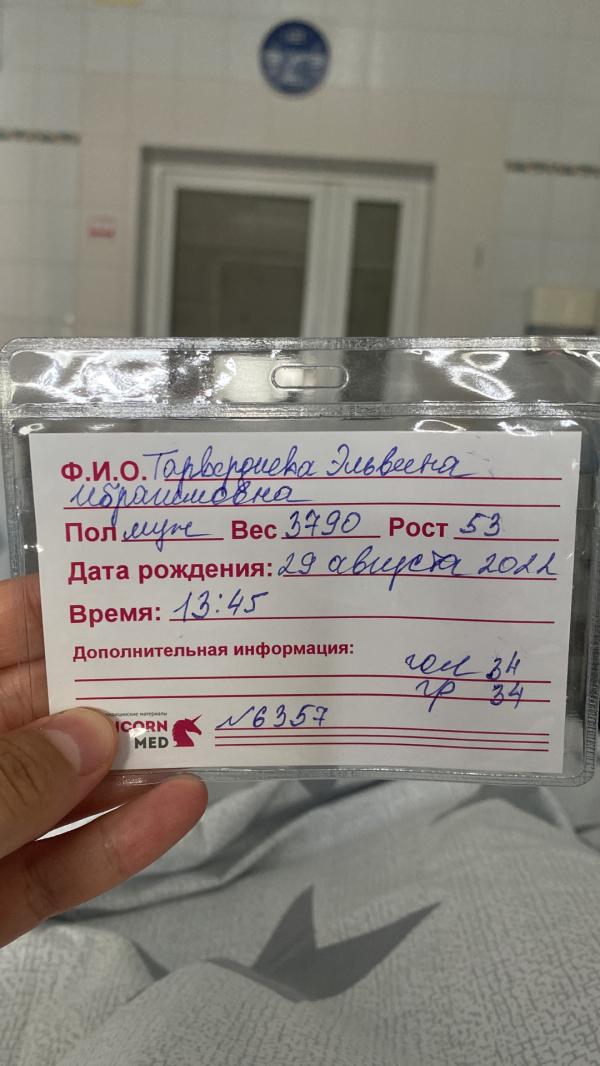 Ф.И.О. Тарвердиева Эльвина
Ибраимовна
Пол муж Вес 3790 Рост 53
Дата рождения: 29 августа 2022
Время: 13:45
Дополнительная информация:
гол 34
гр 34
материалы
ICORN
MED
№6357